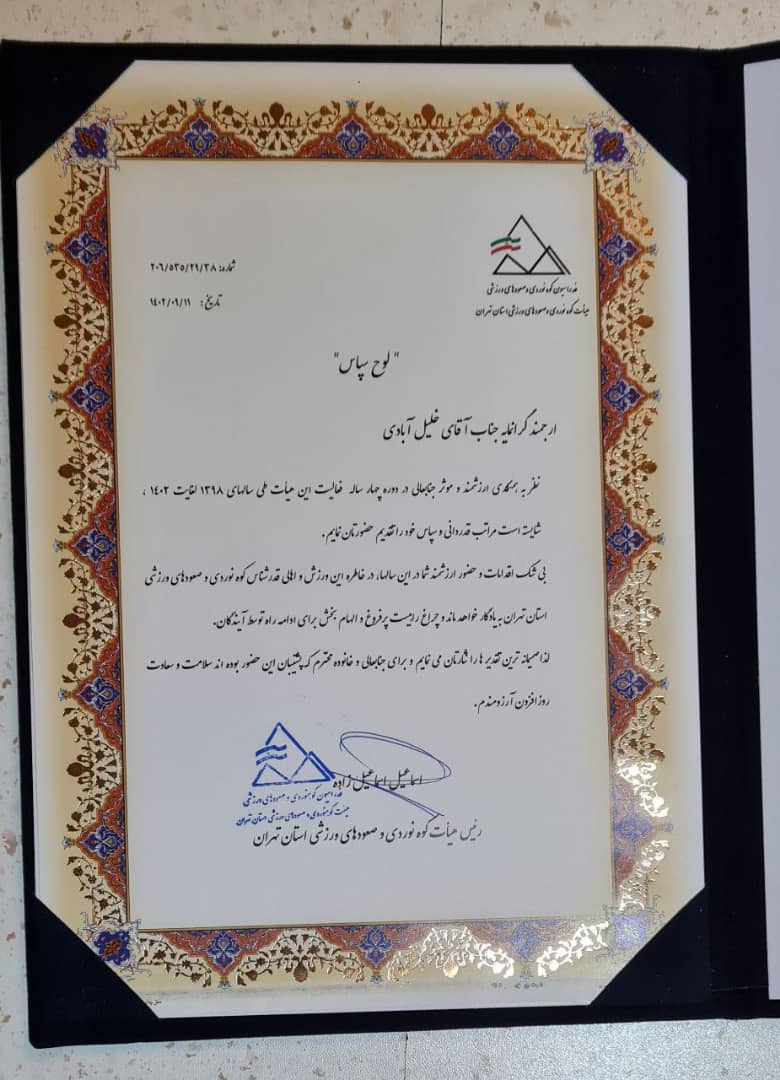 فدراسیون کوه نوردی و صعودهای ورزشی
هیأت کوه نوردی و صعودهای ورزشی استان تهران
شماره: ۲۰۶/۵۳۵/۲۹/۳۸
تاریخ: ۱۴۰۲/۰۹/۱۱
"لوح سپاس"
ارجمند گرانمایه جناب آقای خلیل آبادی
نظر به همکاری ارزشمند و موثر جنابعالی در دوره چهار ساله فعالیت این هیأت طی سالهای ۱۳۹۸ لغایت ۱۴۰۲ ،
شایسته است مراتب قدردانی و سپاس خود را تقدیم حضورتان نمایم.
بی شک اقدامات و حضور ارزشمند شما در این سالها، در خاطره این ورزش و اهالی قدرشناس کوه نوردی و صعودهای ورزشی
استان تهران به یادگار خواهد ماند و چراغ راهیست پرفروغ و الهام بخش برای ادامه راه توسط آیندگان.
لذا صمیمانه ترین تقدیر ها را نثارتان می نمایم و برای جنابعالی و خانواده محترم که پشتیبان این حضور بوده اند سلامت و سعادت
روز افزون آرزومندم.
اسماعیل اسماعیل زاده
فدراسیون کوهنوردی و صعودهای ورزشی
هیئت کوهنوردی و صعودهای ورزشی استان تهران
رئیس هیأت کوه نوردی و صعودهای ورزشی استان تهران